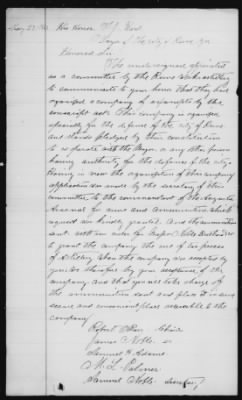 His Honor
Mayor of the City of Rome Ga
Honored Sir
The undersigned appointed
as a committee by the Rome
to communicate to your honor that they had
organized a company of exempts by the
conscript act. This company is organized
specially for the defence of the city of Rome
and stands pledged by their constitution
to cooperate with the Mayor or any other person
having authority for the defence of the city.
Having in view the organization of this company
application was made by the secretary of this
committee to the commandant of the Augusta
Arsenal for arms and ammunition which
request was kindly granted. And the
sent with an order for Major
to grant the company the use of two pieces
of artillery when the company is accepted by
you. We therefore beg your acceptance of the
company and that you will take charge of
the ammunition sent and place it in some
secure and convenient place accessible to the
company
Robert
James Noble Sr
Samuel Adams
M. L. Palmer
Samuel Noble Secretary